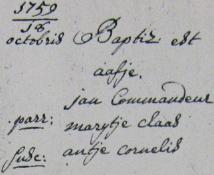 1759
18
octobris Baptiz est
aafje.
jan Commandeur
parr: marytje claas
susc: antje cornelis